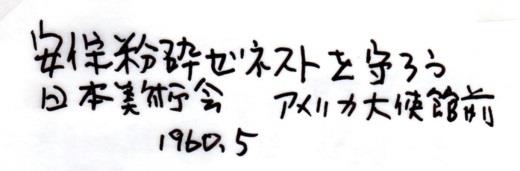 安保粉砕ゼネストを守ろう
日本美術会　アメリカ大使館前
1960.5